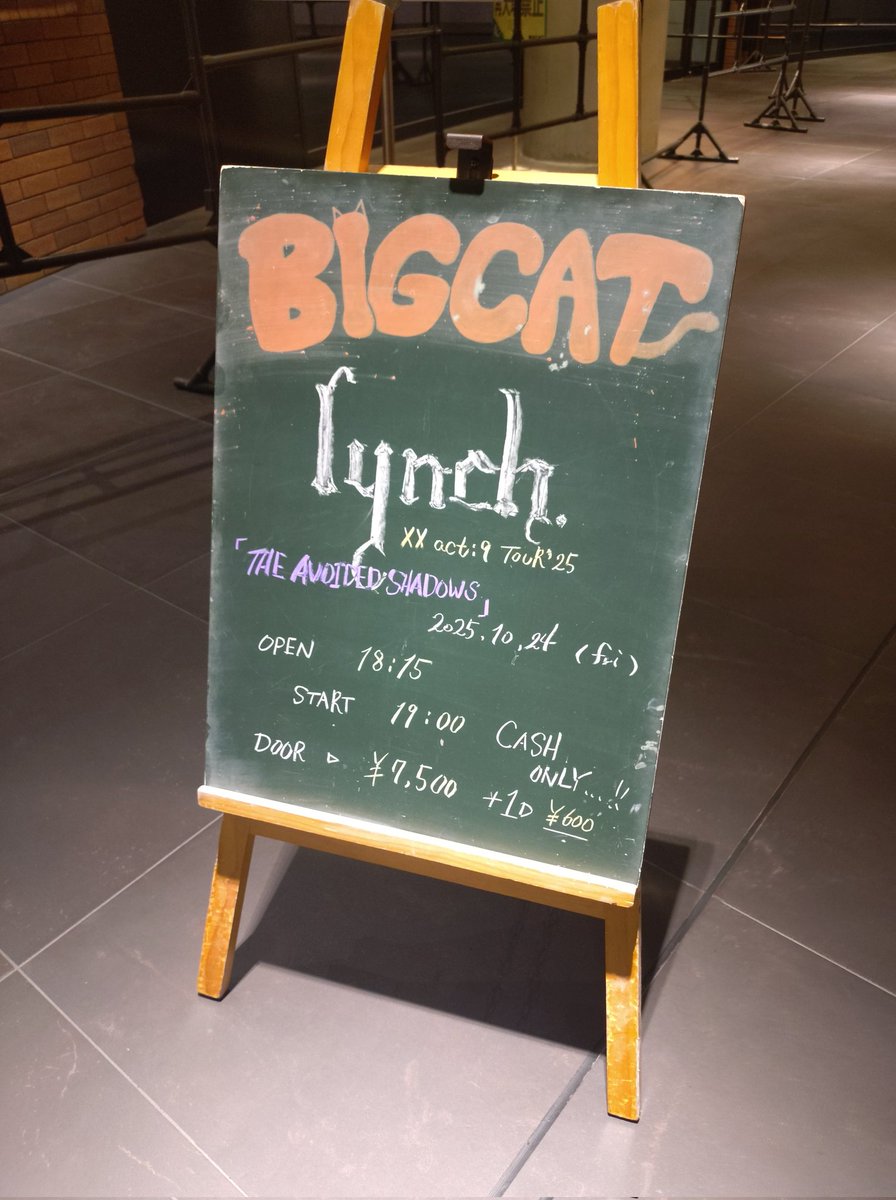 BIGCAT
lynch.
XX act:9 TOUR'25
「THE AVOIDED SHADOWS」
2025.10.24 (fri)
OPEN 18:15
START 19:00
DOOR ▷ ¥7,500
CASH
ONLY....!!
+1D ¥600